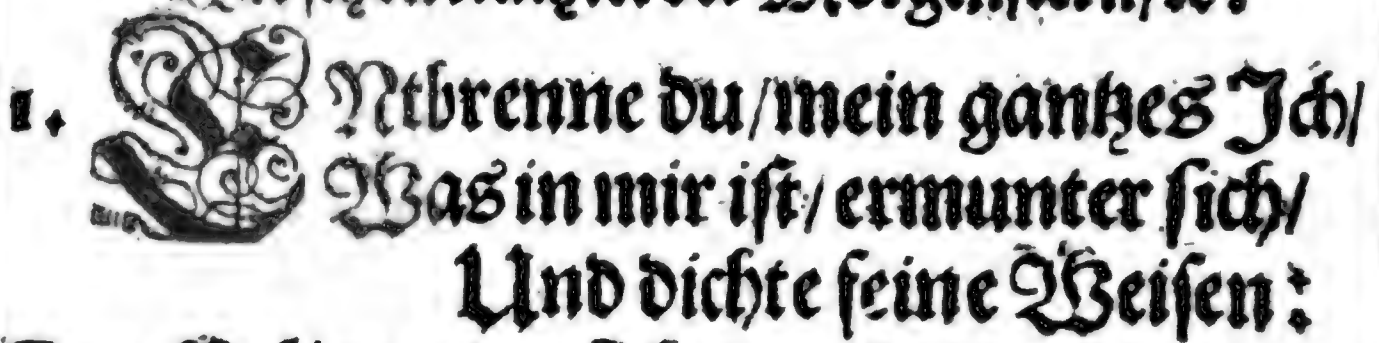 1. ENtbrenne du/mein gantzes Jch/
Was in mir ist/ ermunter sich/
Und dichte seine Weisen: